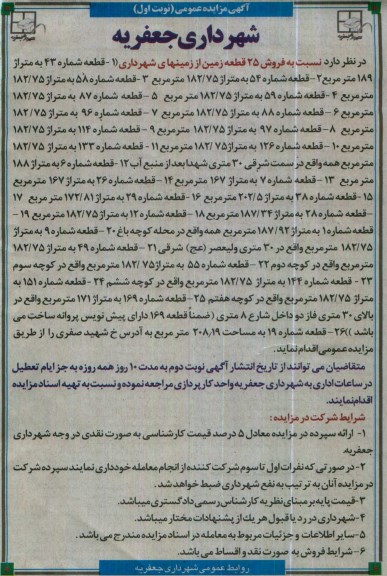 آگهی مزایده عمومی (نوبت اول)
شهرداری جعفریه
در نظر دارد نسبت به فروش ۲۵ قطعه زمین از زمینهای شهرداری (۱- قطعه شماره ۴۳ به متراژ
۱۸۹ متر مربع ۲- قطعه شماره ۵۴ به متراژ ۱۸۲/۷۵ متر مربع ۳- قطعه شماره ۵۸ به متراژ ۱۸۲/۷۵
مترمربع ۴- قطعه شماره ۵۹ به متراژ ۱۸۲/۷۵ متر مربع ۵- قطعه شماره ۸۷ به متراژ ۱۸۲/۷۵
مترمربع ۶- قطعه شماره ۸۸ به متراژ ۱۸۲/۷۵ متر مربع ۷- قطعه شماره ۹۶ به متراژ ۱۸۲/۷۵
مترمربع ۸- قطعه شماره ۹۷ به متراژ ۱۸۲/۷۵ مترمربع ۹- قطعه شماره ۱۱۴ به متراژ ۱۸۲/۷۵
مترمربع ۱۰- قطعه شماره ۱۲۶ به متراژ ۱۸۲/۷۵ مترمربع ۱۱- قطعه شماره ۱۳۳ به متراژ ۱۸۲/۷۵
مترمربع همه واقع در سمت شرقی ۳۰ متری شهدا بعد از منبع آب ۱۲- قطعه شماره ۶ به متراژ ۱۸۸
متر مربع ۱۳- قطعه شماره ۷ به متراژ ۱۶۷ مترمربع ۱۴- قطعه شماره ۲۶ به متراژ ۱۶۷ مترمربع
۱۵- قطعه شماره ۳۸ به متراژ ۲۰۲/۵ مترمربع ۱۶- قطعه شماره ۲۹ به متراژ ۱۷۲/۸۱ متر مربع ۱۷
- قطعه شماره ۲۸ به متراژ ۱۸۷/۳۴ مترمربع ۱۸- قطعه شماره ۱۲ به متراژ ۱۸۲/۷۵ مترمربع ۱۹-
قطعه شماره ۱ به متراژ ۱۸۷/۹۲ مترمربع همه واقع در محله کوچه باغ ۲۰- قطعه شماره ۹ به متراژ
۱۸۲/۷۵ مترمربع واقع در ۳۰ متری ولیعصر (عج) شرقی ۲۱- قطعه شماره ۴۹ به متراژ ۱۸۲/۷۵
مترمربع واقع در کوچه دوم ۲۲- قطعه شماره ۵۵ به متراژ ۱۸۲/۷۵ مترمربع واقع در کوچه سوم
۲۳- قطعه شماره ۱۴۴ به متراژ ۱۸۲/۷۵ مترمربع واقع در کوچه ششم ۲۴- قطعه شماره ۱۵۱ به
متراژ ۱۸۲/۷۵ مترمربع واقع در کوچه هفتم ۲۵- قطعه شماره ۱۶۹ به متراژ ۱۷۱ مترمربع واقع در
بالای ۳۰ متری فاز دو داخل شارع ۸ متری (ضمنا قطعه ۱۶۹ دارای پیش نویس پروانه ساخت می
باشد) ۲۶- قطعه شماره ۱۹ به مساحت ۲۰۸,۱۹ متر مربع به آدرس خ شهید صفری را از طریق
مزایده عمومی اقدام نماید.
متقاضیان می توانند از تاریخ انتشار آگهی نوبت دوم به مدت ۱۰ روز همه روزه به جز ایام تعطیل
در ساعات اداری به شهرداری جعفریه واحد کارپردازی مراجعه نموده و نسبت به تهیه اسناد مزایده
اقدام نمایند.
شرایط شرکت در مزایده:
۱- ارائه سپرده در مزایده معادل ۵ درصد قیمت کارشناسی به صورت نقدی در وجه شهرداری
جعفریه.
۲- در صورتی که نفرات اول تا سوم شرکت کننده از انجام معامله خودداری نمایند سپرده شرکت
در مزایده آنان به ترتیب به نفع شهرداری ضبط خواهد شد.
۳- قیمت پایه بر مبنای نظریه کارشناس رسمی دادگستری میباشد.
۴- شهرداری در رد یا قبول هر یک از پیشنهادات مختار میباشد.
۵- سایر اطلاعات و جزئیات مربوط به معامله در اسناد مزایده مندرج می باشد.
۶- شرایط فروش به صورت نقد و اقساط می باشد.
روابط عمومی شهرداری جعفریه